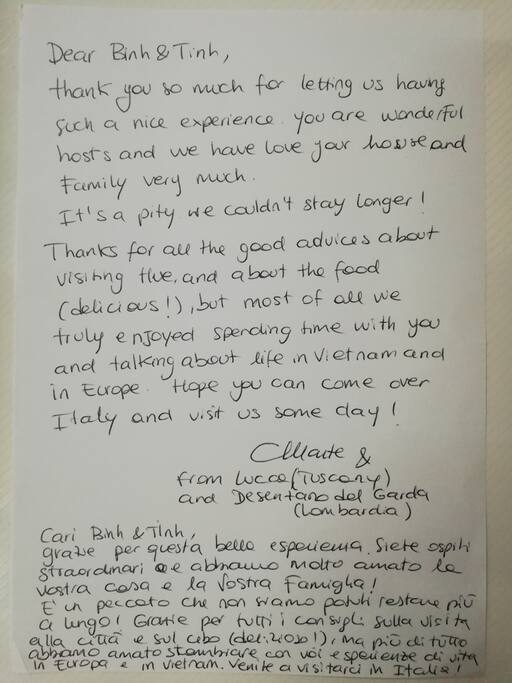 Dear Binh & Tinh,
thank you so much for letting us having
such a nice experience. you are wonderful
hosts and we have love your house and
family very much.
It's a pity we couldn't stay longer!
Thanks for all the good advices about
visiting Hue, and about the food
(delicious!), but most of all we
truly enjoyed spending time with you
and talking about life in Vietnam and
in Europe. Hope you can come over
Italy and visit us some day!
&
from Lucca (Tuscany)
and Desenzano del Garda
(Lombardia)
Cari Binh & Tinh,
grazie per questa bella esperienza. Siete ospiti
straordinari e abbiamo molto amato la
vostra casa e la vostra famiglia!
E' un peccato che non siamo potuti restare più
a lungo! Grazie per tutti i consigli sulla visita
alla città e sul cibo (delizioso!), ma più di tutto
abbiamo amato scambiare con voi esperienze di vita
in Europa e in Vietnam. Venite a visitarci in Italia!